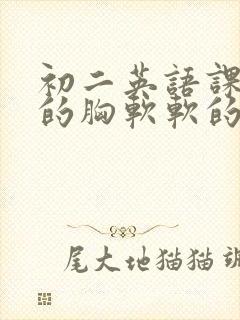 初二英語課
的胸軟軟的
尾大地猫猫